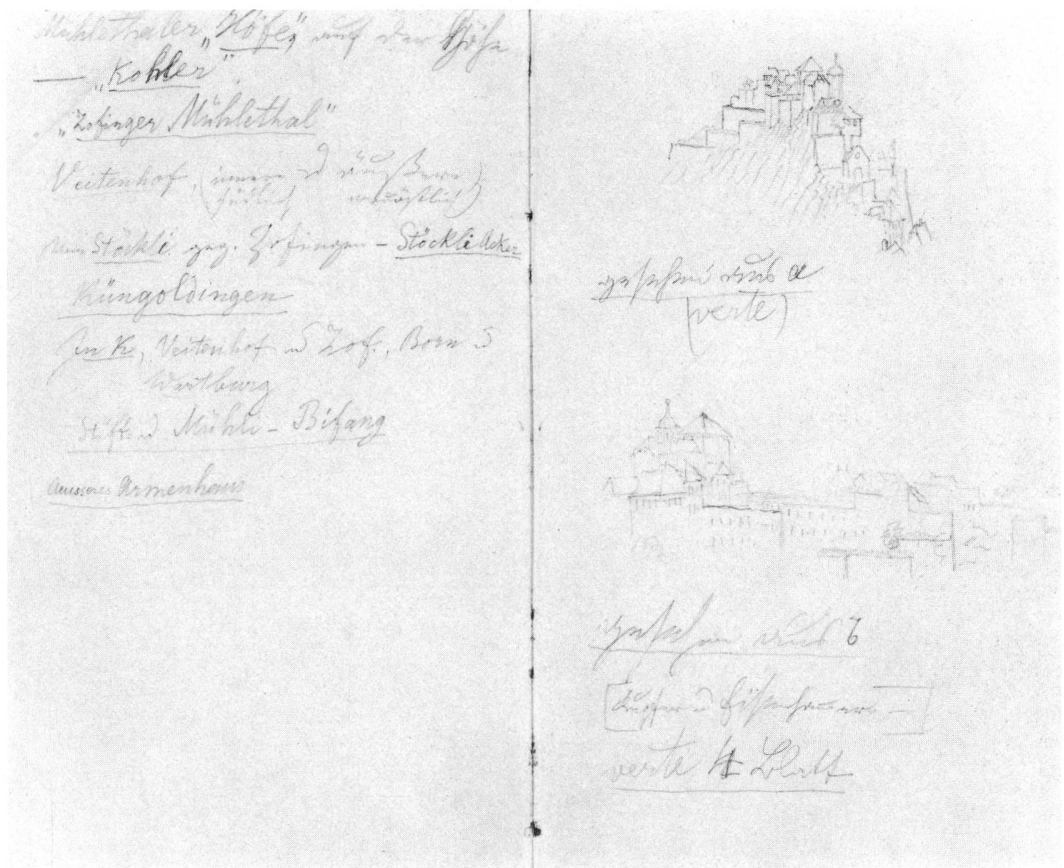 Mühlethaler „Höfe“, auf der Höhe
— „Kohler“.
„Zofinger Mühlethal“
Veitenhof, (innere u äußere)
südlich nordöstlich
Stöckli geg. Zofingen – Stöckli Acker
Küngoldingen
In K, Veitenhof u Zof., Born u
Wartburg
Stift u Mühli – Bifang
Aeusseres Armenhaus
gesehen aus a
(verte)
gesehen aus b
[Kupfer u
verte 4 Blatt